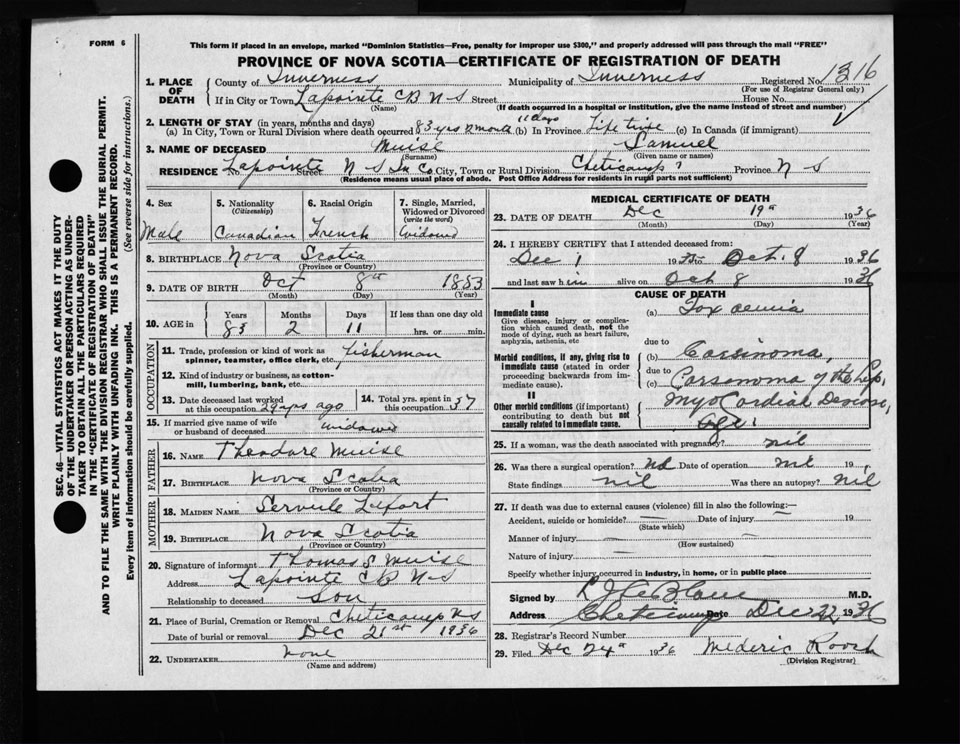 FORM 6
This form if placed in an envelope, marked "Dominion Statistics—Free, penalty for improper use $300," and properly addressed will pass through the mail "FREE"
PROVINCE OF NOVA SCOTIA—CERTIFICATE OF REGISTRATION OF DEATH
1. PLACE OF DEATH County of Inverness Municipality of Inverness Registered No. 1316
(For use of Registrar General only)
If in City or Town Lapointe CB N S Street House No.
(Name) (If death occurred in a hospital or institution, give the name instead of street and number)
2. LENGTH OF STAY (in years, months and days)
(a) In City, Town or Rural Division where death occurred 83 yrs 2 month 11 days (b) In Province Life time (c) In Canada (if immigrant)
3. NAME OF DECEASED Muise Samuel
(Surname) (Given name or names)
RESIDENCE Lapointe Street N S In Co City, Town or Rural Division Cheticamp Province N S
(Residence means usual place of abode. Post Office Address for residents in rural parts not sufficient)
SEC. 46—VITAL STATISTICS ACT MAKES IT THE DUTY
OF THE UNDERTAKER OR PERSON ACTING AS UNDER-
TAKER TO OBTAIN ALL THE PARTICULARS REQUIRED
IN THE "CERTIFICATE OF REGISTRATION OF DEATH"
AND TO FILE THE SAME WITH THE DIVISION REGISTRAR WHO SHALL ISSUE THE BURIAL PERMIT.
WRITE PLAINLY WITH UNFADING INK. THIS IS A PERMANENT RECORD.
Every item of information should be carefully supplied. (See reverse side for instructions.)
4. Sex 5. Nationality (Citizenship) 6. Racial Origin 7. Single, Married, Widowed or Divorced (write the word)
Male Canadian French Widowed
8. BIRTHPLACE Nova Scotia
(Province or Country)
9. DATE OF BIRTH Oct 8th 1853
(Month) (Day) (Year)
10. AGE in Years Months Days If less than one day old
83 2 11 hrs. or min.
OCCUPATION
11. Trade, profession or kind of work as spinner, teamster, office clerk, etc. fisherman
12. Kind of industry or business, as cotton-mill, lumbering, bank, etc.
13. Date deceased last worked at this occupation 29 yrs ago 14. Total yrs. spent in this occupation 37
15. If married give name of wife or husband of deceased widowed
FATHER
16. NAME Theodore Muise
17. BIRTHPLACE Nova Scotia
(Province or Country)
MOTHER
18. MAIDEN NAME Servule Lefort
19. BIRTHPLACE Nova Scotia
(Province or Country)
20. Signature of informant Thomas S Muise
Address Lapointe CB N S
Relationship to deceased Son
21. Place of Burial, Cremation or Removal Cheticamp N S
Date of burial or removal Dec 21st 1936
22. UNDERTAKER none
(Name and address)
MEDICAL CERTIFICATE OF DEATH
23. DATE OF DEATH Dec 19th 1936
(Month) (Day) (Year)
24. I HEREBY CERTIFY that I attended deceased from:
Dec 1 1935 to Oct. 8 1936
and last saw him alive on Oct 8 1936
CAUSE OF DEATH
I
Immediate cause
Give disease, injury or complication which caused death, not the mode of dying, such as heart failure, asphyxia, asthenia, etc
(a) Toxaemia
due to
Morbid conditions, if any, giving rise to immediate cause (stated in order proceeding backwards from immediate cause).
(b) Carsinoma,
due to
(c) Carsonoma of the Lip,
II
Other morbid conditions (if important) contributing to death but not causally related to immediate cause.
Myocordial Desease,
Age.
25. If a woman, was the death associated with pregnancy? nil
26. Was there a surgical operation? no Date of operation nil 19
State findings nil Was there an autopsy? nil
27. If death was due to external causes (violence) fill in also the following:—
Accident, suicide or homicide? — Date of injury — 19
(State which)
Manner of injury — —
(How sustained)
Nature of injury —
Specify whether injury occurred in industry, in home, or in public place
Signed by LeBlanc M.D.
Address Cheticamp Date Dec 22, 1936
28. Registrar's Record Number
29. Filed Dec 24th 1936 Mederic Roach
(Division Registrar)